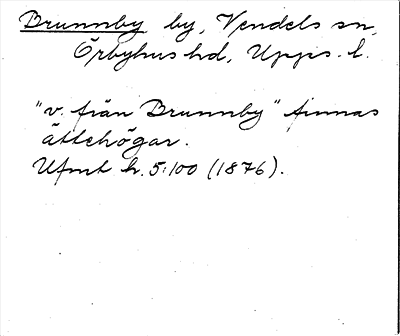 Brunnby by, Vendels sn,
Örbyhus hd, Upps. l.
"v. från Brunnby" finnas
ättehögar.
Ufmt h. 5:100 (1876).